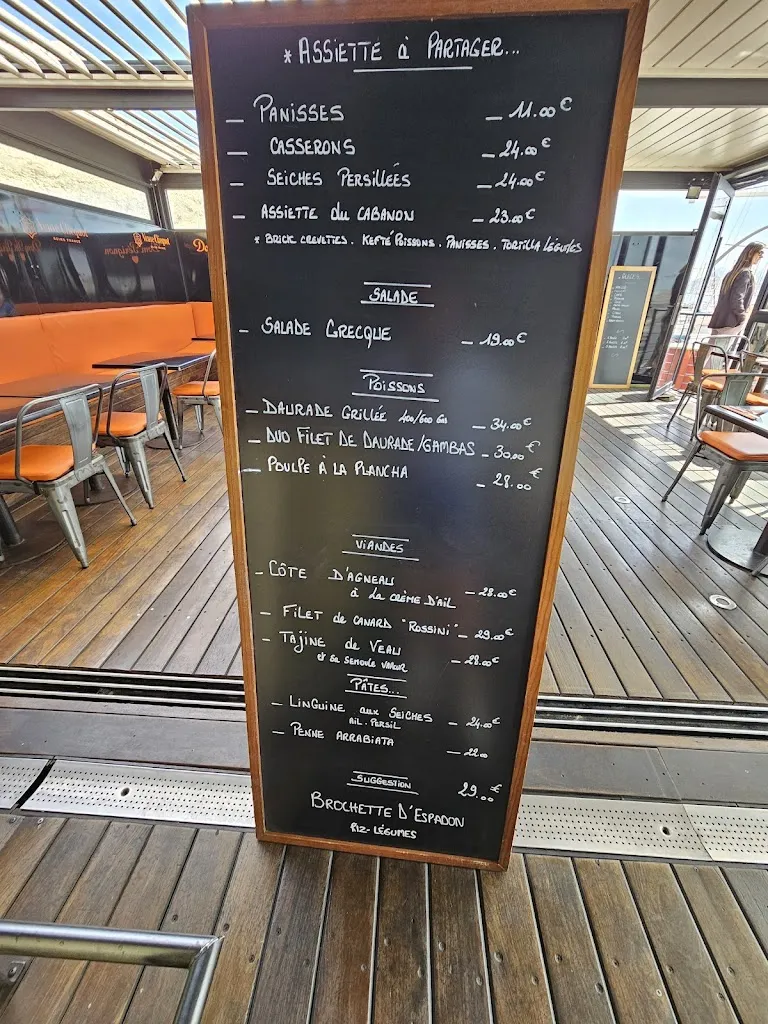 * ASSIETTE à PARTAGER...
— PANISSES — 11.00€
CASSERONS — 24.00€
— SEICHES PERSILLÉES — 24.00€
— ASSIETTE du CABANON — 23.00€
* BRICK CREVETTES. KEFTÉ POISSONS. PANISSES. TORTILLA LÉGUMES
SALADE
— SALADE GRECQUE — 19.00€
POISSONS
— DAURADE GRILLÉE 400/600 GR — 34.00€
— DUO FILET DE DAURADE/GAMBAS — 30.00€
— POULPE À LA PLANCHA — 28.00€
VIANDES
— CÔTE D'AGNEAU
à la CRÈME D'AIL — 28.00€
— FILET de CANARD "ROSSINI" — 29.00€
— TAJINE de VEAU
et sa SEMOULE VAPEUR — 28.00€
PÂTES...
— LINGUINE aux SEICHES — 24.00€
AIL. PERSIL
— PENNE ARRABIATA — 22.00
SUGGESTION 29.00€
BROCHETTE D'ESPADON
RIZ-LÉGUMES
Veuve Clicquot